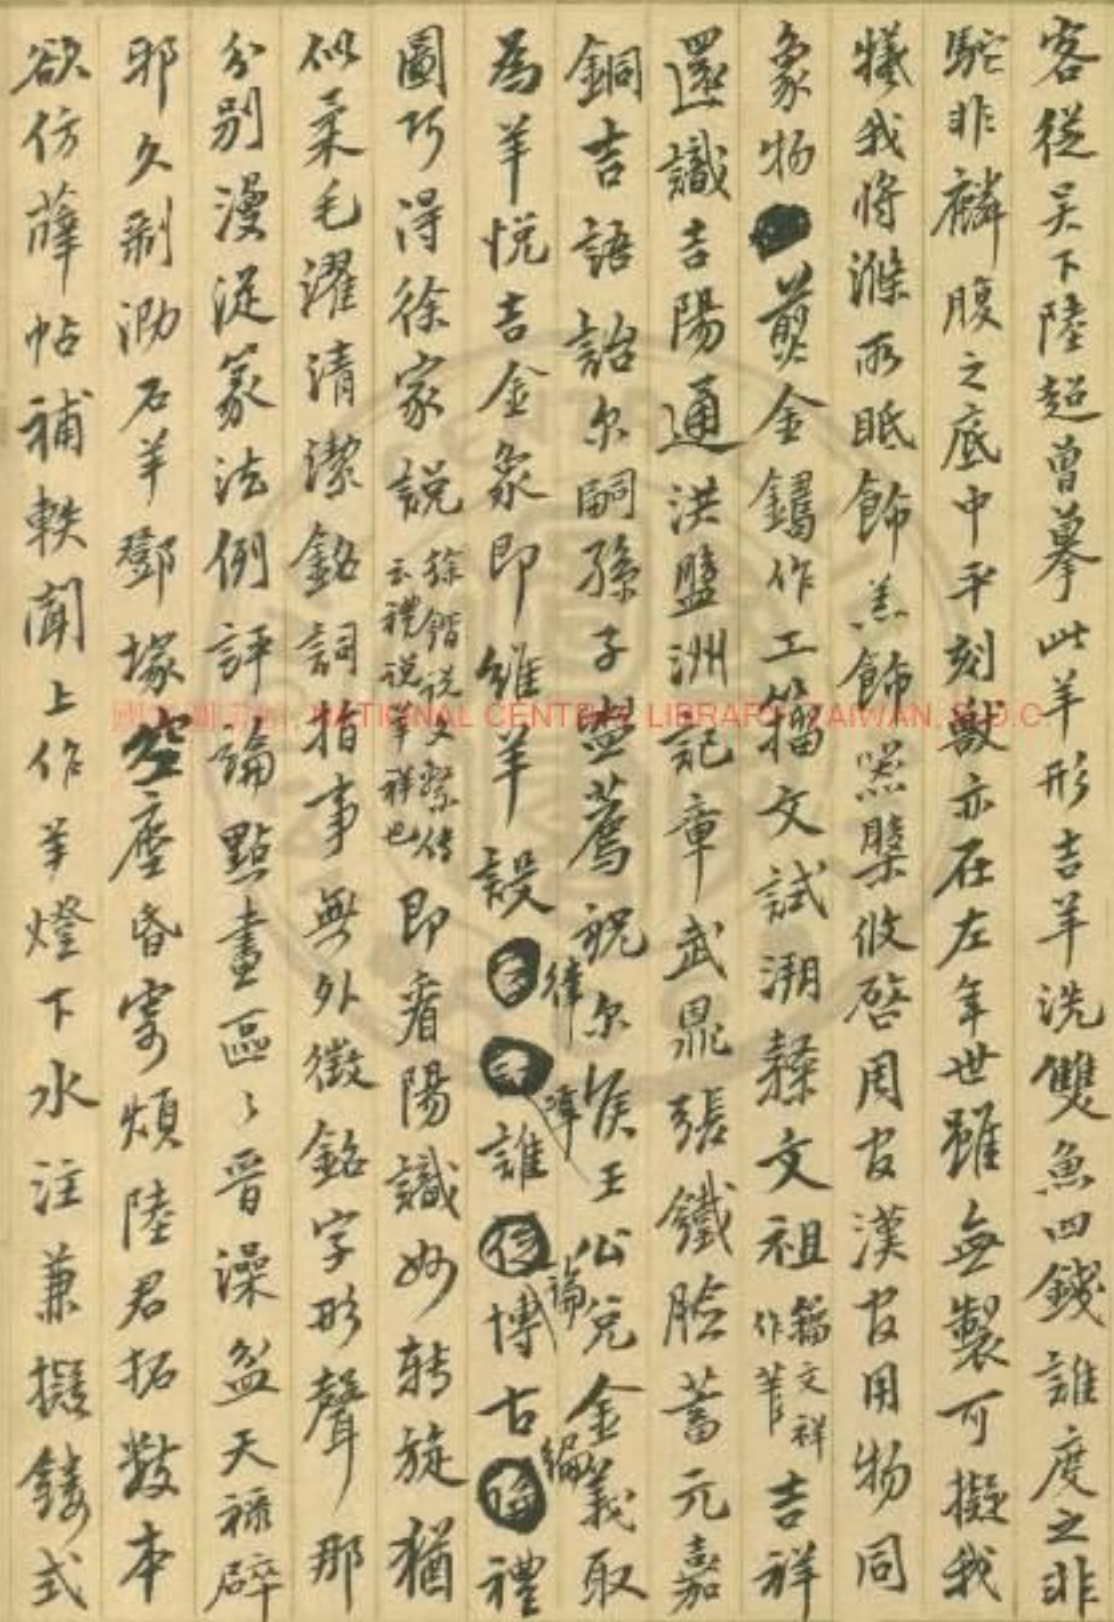 客從吴下陸超曾摹此羊形吉羊洗雙魚四錢誰度之非
駝非麟腹之底中平刻獸亦在左年世雖無製可擬我
犧我將滌而眡飾羔飾罴槩攸啓周官漢官用物同
象物剪金鐫作工籀文試溯繇文祖籀文祥作𦍌吉祥
還識吉陽通洪盬洲記章武鼎張鐵臉蓄元嘉
銅吉語詒尔嗣孫子盬薦祝尔矦王公兑金義取
為羊悦吉金象即維羊羊設律譚誰論博古編禮
圖巧得徐家說徐鍇說文繫傳云禮說羊祥也即看陽識妙轉旋猶
似柔毛濯清潔銘詞指事無外徵銘字形聲那
分别漫從篆法例評論點畫區〻晉澡盆天祿辟
邪久剥泐石羊鄧塚空塵昏寄煩陸君拓數本
欲仿薛帖補軼聞上作羊燈下水注兼擬鏤式
國家圖書館 NATIONAL CENTRAL LIBRARY, TAIWAN, R.O.C